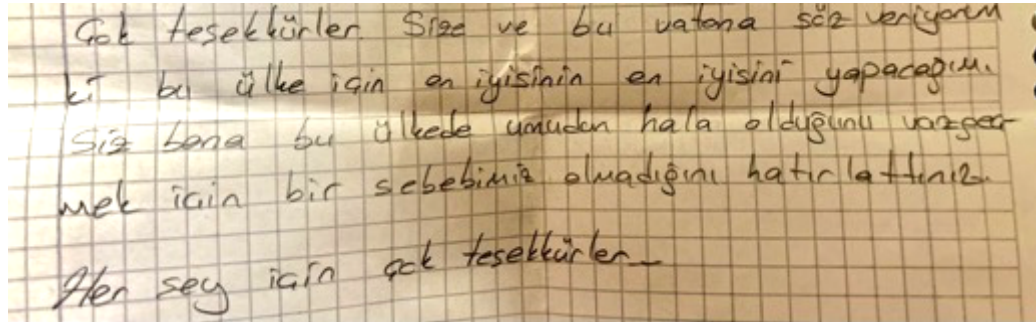 Çok teşekkürler. Size ve bu vatana söz veriyorum
ki bu ülke için en iyisinin en iyisini yapacağım.
Siz bana bu ülkede umudun hala olduğunu vazgeç-
mek için bir sebebimiz olmadığını hatırlattınız.
Her şey için çok teşekkürler